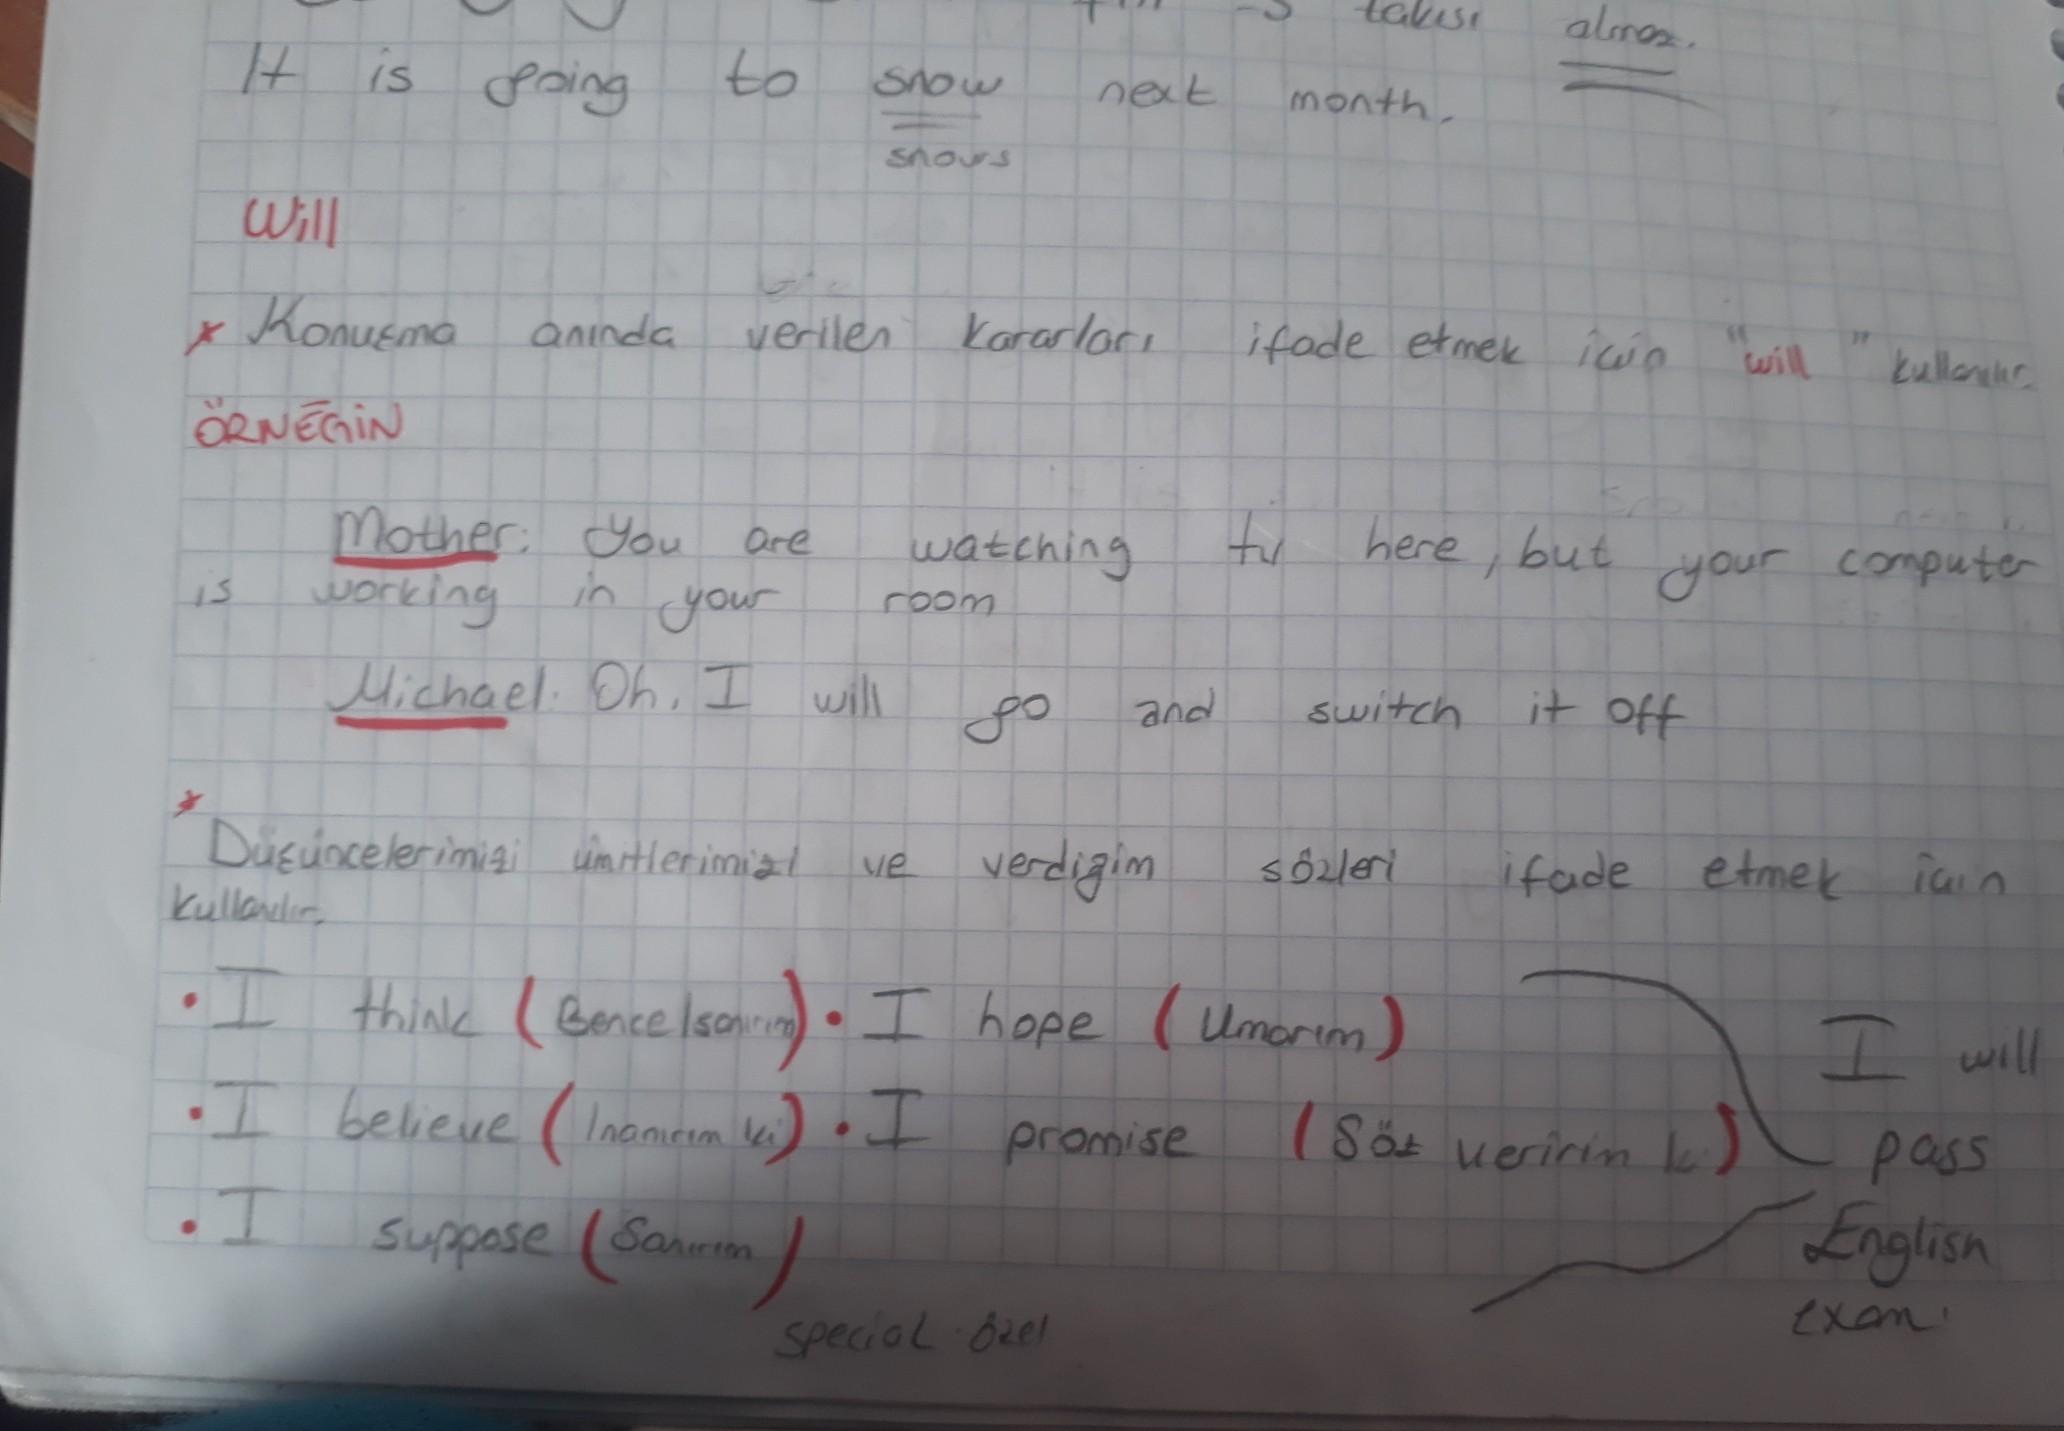 -s takısı almaz.
It is going to snow next month.
snows
Will
* Konuşma anında verilen kararları ifade etmek için "will" kullanılır.
ÖRNEĞİN
Mother: You are watching tv here, but your computer
is working in your room
Michael: Oh, I will go and switch it off
*
Düşüncelerimizi ümitlerimizi ve verdiğim sözleri ifade etmek için
kullanılır.
• I think (Bence/sanırım) • I hope (Umarım)
• I believe (Inanırım ki) • I promise (Söz veririm ki)
• I suppose (Sanırım)
I will
pass
English
exam.
special · özel